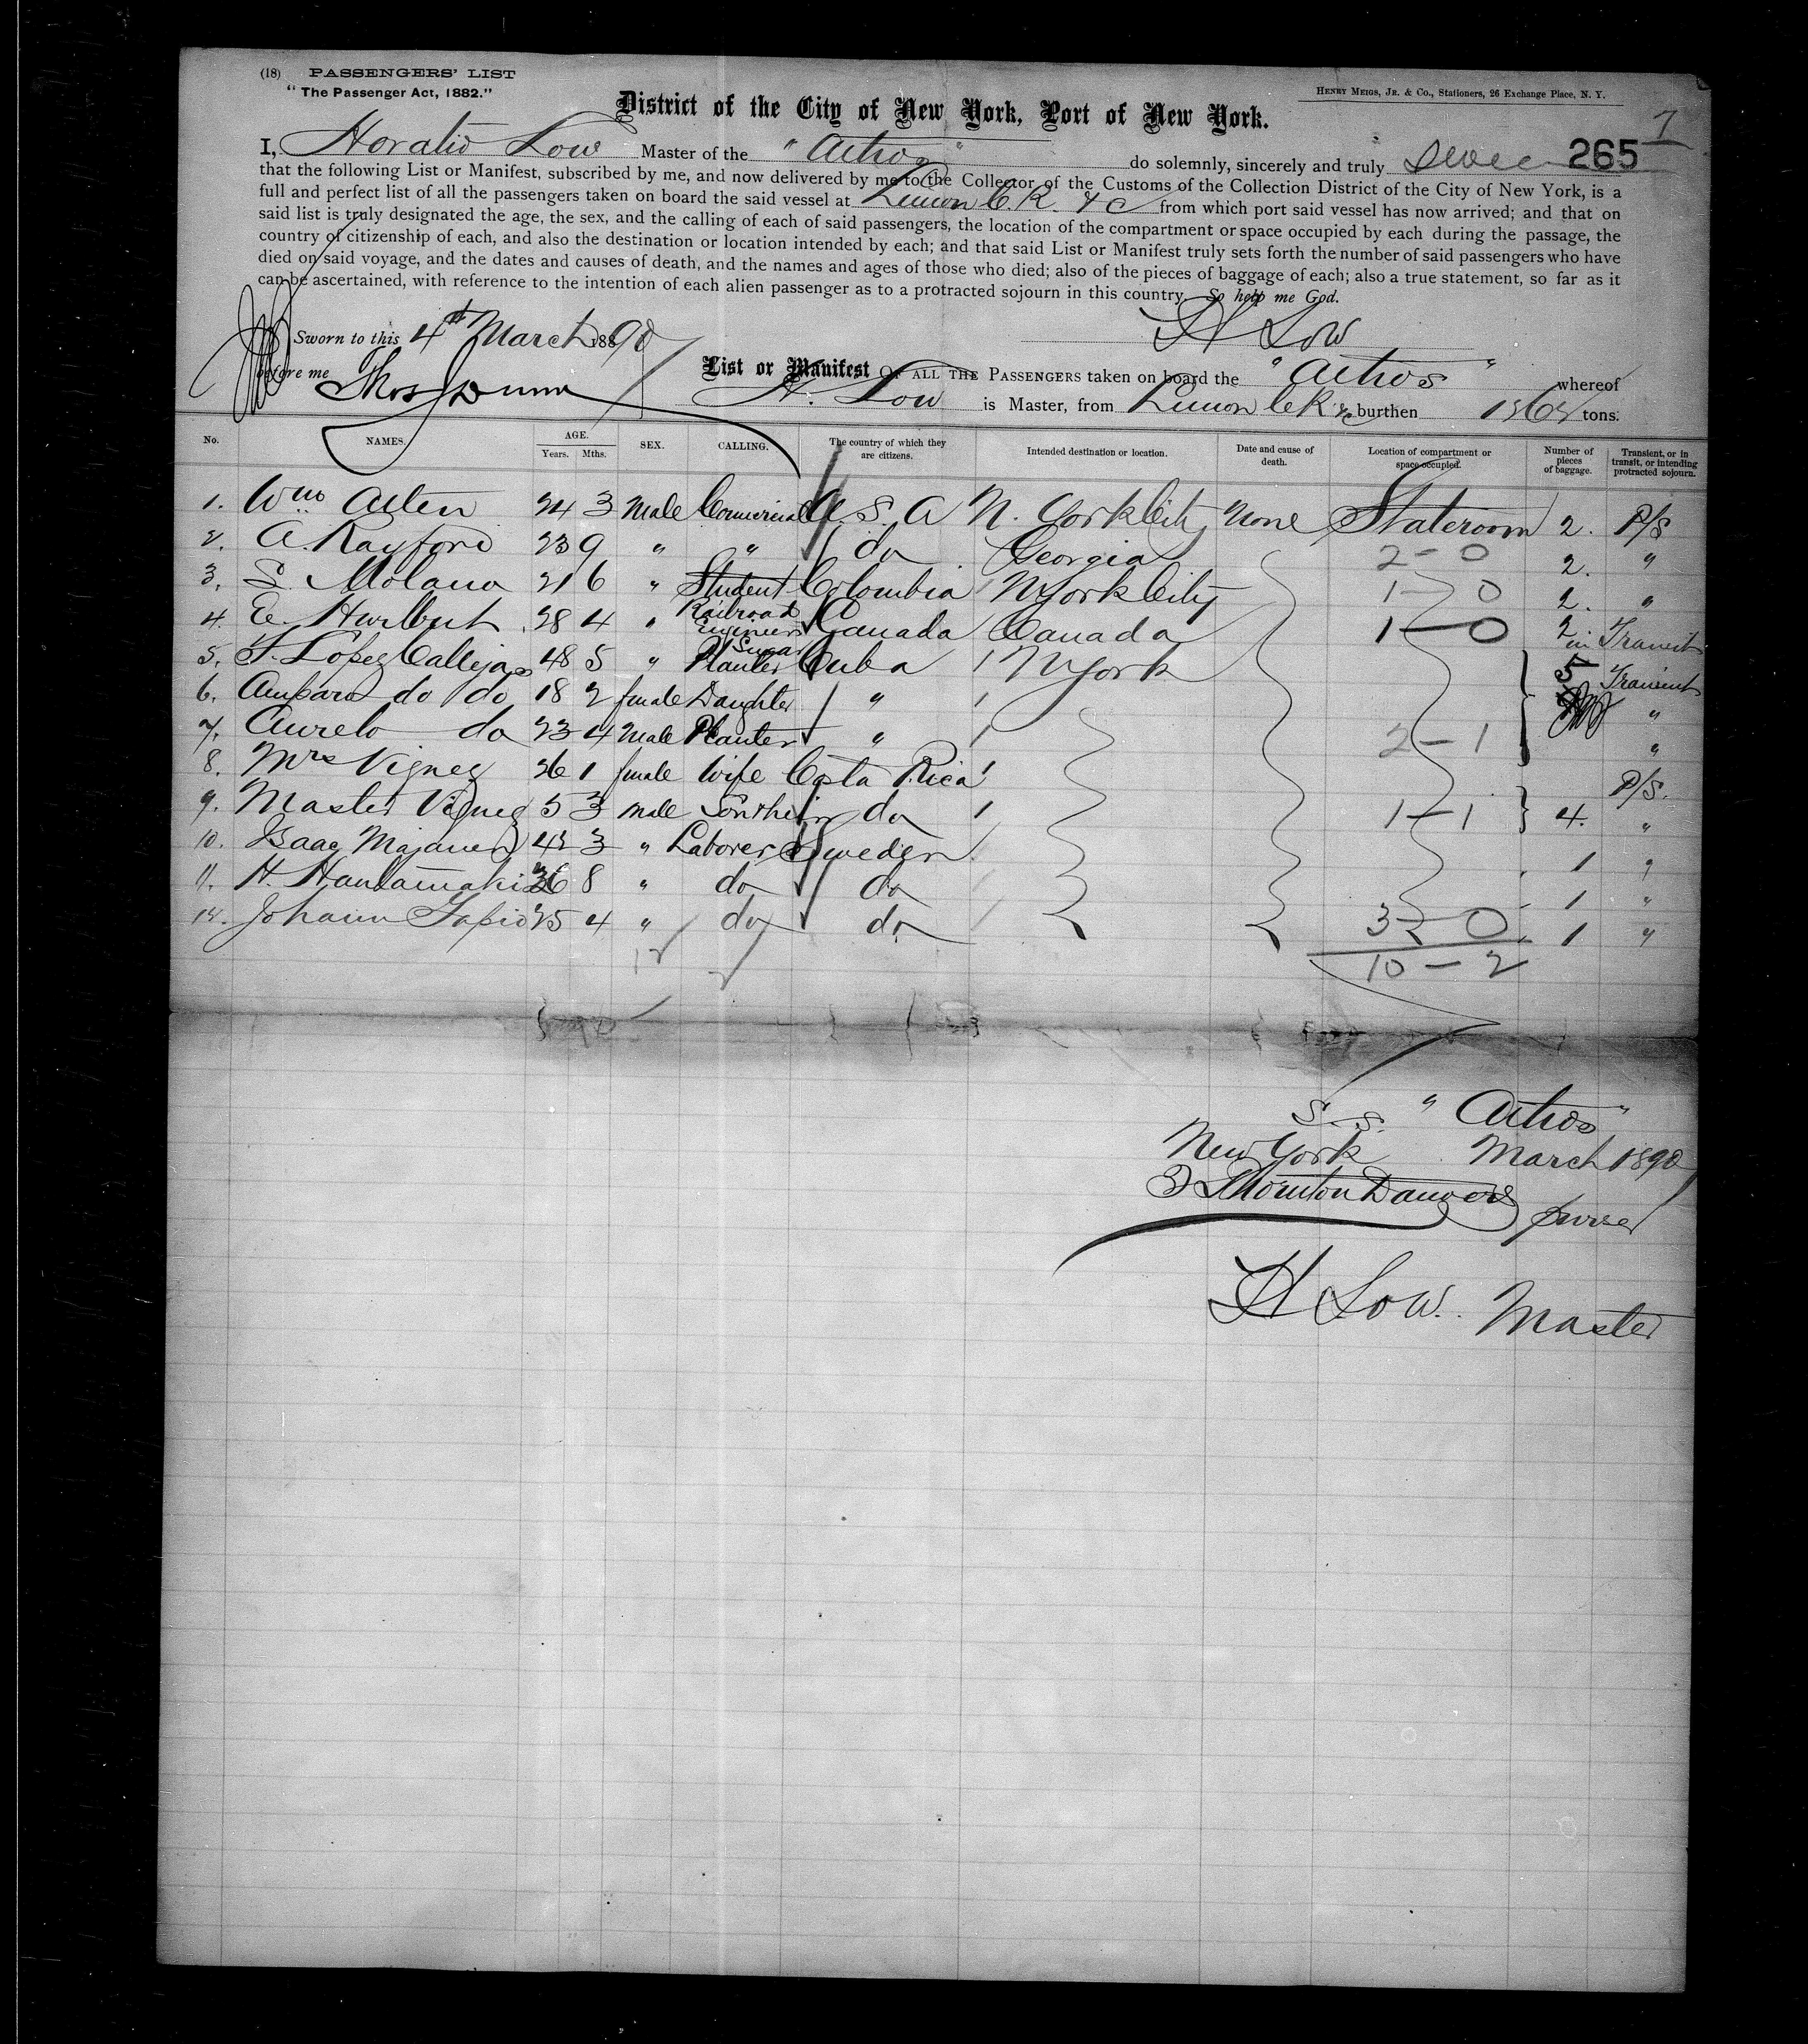 (18) PASSENGERS' LIST
"The Passenger Act, 1882."
HENRY MEIGS, JR. & CO., Stationers, 26 Exchange Place, N. Y.
District of the City of New York, Port of New York.
7
265
I, Horatio Low Master of the "Athos" do solemnly, sincerely and truly swear
that the following List or Manifest, subscribed by me, and now delivered by me to the Collector of the Customs of the Collection District of the City of New York, is a
full and perfect list of all the passengers taken on board the said vessel at Limon C. R. &c from which port said vessel has now arrived; and that on
said list is truly designated the age, the sex, and the calling of each of said passengers, the location of the compartment or space occupied by each during the passage, the
country of citizenship of each, and also the destination or location intended by each; and that said List or Manifest truly sets forth the number of said passengers who have
died on said voyage, and the dates and causes of death, and the names and ages of those who died; also of the pieces of baggage of each; also a true statement, so far as it
can be ascertained, with reference to the intention of each alien passenger as to a protracted sojourn in this country. So help me God.
H Low
Sworn to this 4th March 1890
before me Thos Dunn
List or Manifest OF ALL THE PASSENGERS taken on board the "Athos" whereof
H. Low is Master, from Limon C R &c burthen tons.
No. NAMES. AGE. Years. Mths. SEX. CALLING. The country of which they are citizens. Intended destination or location. Date and cause of death. Location of compartment or space occupied. Number of pieces of baggage. Transient, or in transit, or intending protracted sojourn.
1. Wm Alten 24 3 Male Commercial U. S. A N. York City None Stateroom 2. P/S
2. A. Rayford 23 9 " " do Georgia 2-0 2. "
3. S. Molano 21 6 " Student Colombia N York City 1-0 2. "
4. E. Hurlbut 28 4 " Railroad Engineer Canada Canada 1-0 2 in Transit
5. F. Lopez Callejas 48 5 " Sugar Planter Cuba N York 5 Transient
6. Amparo do do 18 2 female Daughter " "
7. Aurelo do 23 4 Male Planter " 2-1 "
8. Mrs Viquez 26 1 female Wife Costa Rica P/S.
9. Master Viquez 5 3 male Son do 1-1 4. "
10. Isaac 3 " Laborer Sweden 1 "
11. H. Hantamaki 36 8 " do do 1 "
12. Johann Tapio 25 4 " do do 3-0 1 "
12
10-2
S. S. "Athos"
New York March 1890
Thornton Danvers purser
H Low. Master